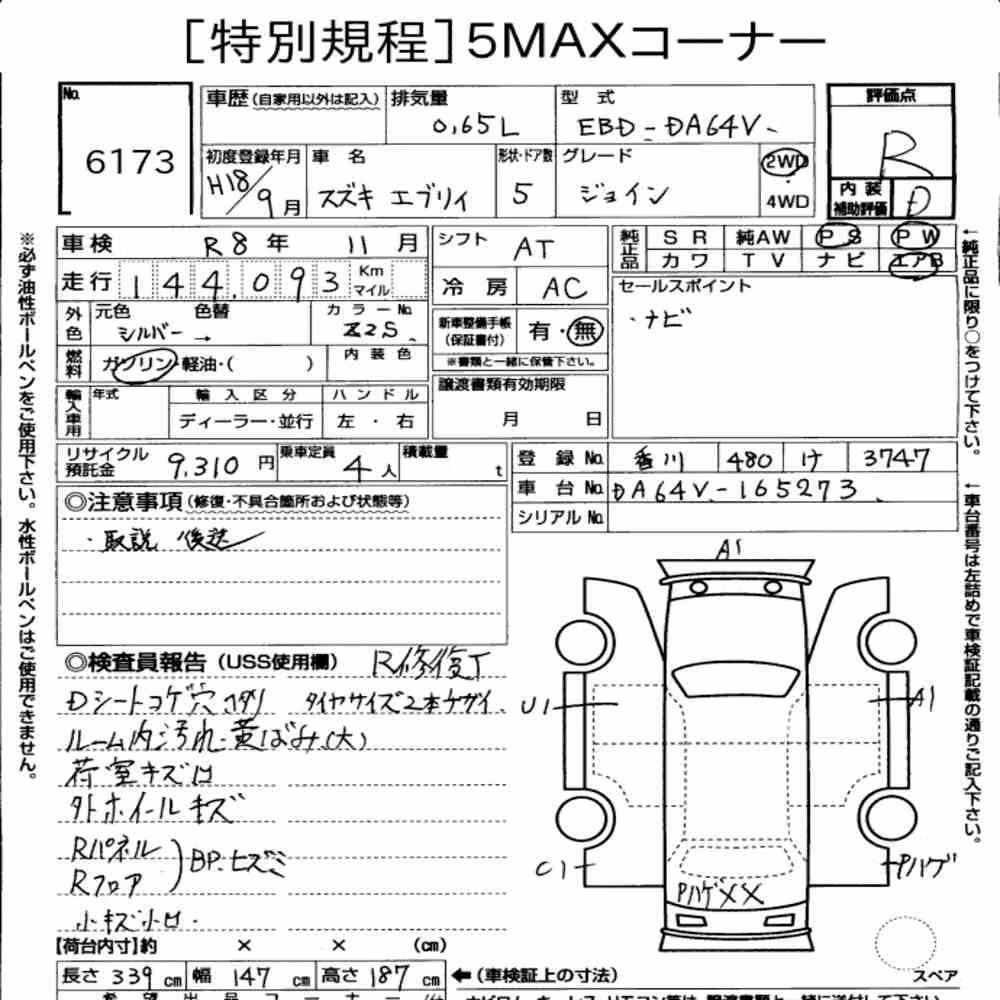 [特別規程]5MAXコーナー
No. 6173
車歴(自家用以外は記入) 排気量 0.65L 型式 EBD-DA64V
評価点 R
初度登録年月 H18/9月 車名 スズキ エブリィ 形状・ドア数 5 グレード ジョイン 2WD・4WD
内装補助評価 D
車検 R8年 11月 シフト AT 純正品 SR 純AW PS PW
走行 144,093 Km マイル 冷房 AC カワ TV ナビ エアB
外色 元色 シルバー → 色替 カラーNo. Z2S
新車整備手帳(保証書付) 有・無
※書類と一緒に保管下さい。
セールスポイント
・ナビ
燃料 ガソリン・軽油・( ) 内装色
譲渡書類有効期限 月 日
輸入車用 年式 輸入区分 ディーラー・並行 ハンドル 左・右
リサイクル預託金 9,310円 乗車定員 4人 積載量 t
登録No. 香川 480 け 3747
車台No. DA64V-165273
シリアルNo.
◎注意事項(修復・不具合箇所および状態等)
・取説 後送
◎検査員報告(USS使用欄) R修復丁
Dシートコゲ穴コダリ タイヤサイズ2本チガイ
ルーム内汚れ・黄ばみ(大)
荷室キズ凹
外ホイールキズ
Rパネル
Rフロア
BP.ヒズミ
小キズ小凹.
A1
U1
A1
C1
Pハゲ
PハゲXX
スペア
【荷台内寸】約 × × (cm)
長さ 339cm 幅 147cm 高さ 187cm ←(車検証上の寸法)
※必ず油性ボールペンをご使用下さい。水性ボールペンはご使用できません。
←純正品に限り○をつけて下さい。
←車台番号は左詰めで車検証記載の通りご記入下さい。